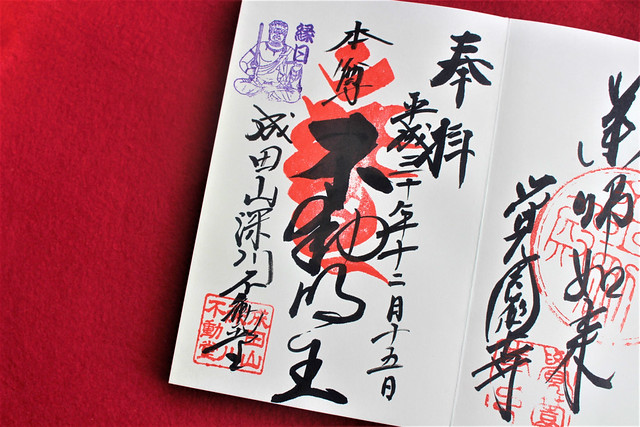 薬師如来
覚園寺
奉拝
平成三十年十二月十五日
本尊
不動明王
縁日
成田山深川不動堂
成田山
不動堂